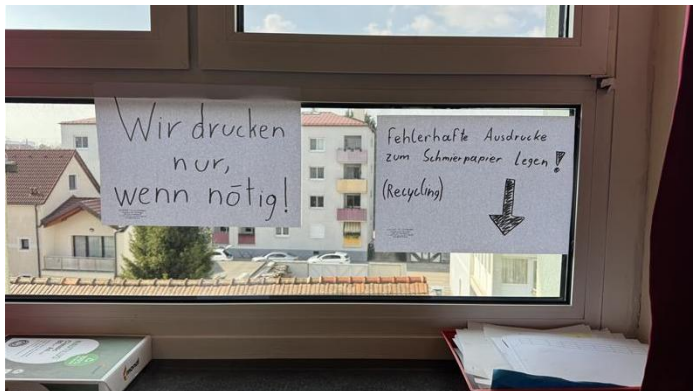 Wir drucken
nur,
wenn nötig!
Fehlerhafte Ausdrucke
zum Schmierpapier legen!
(Recycling)